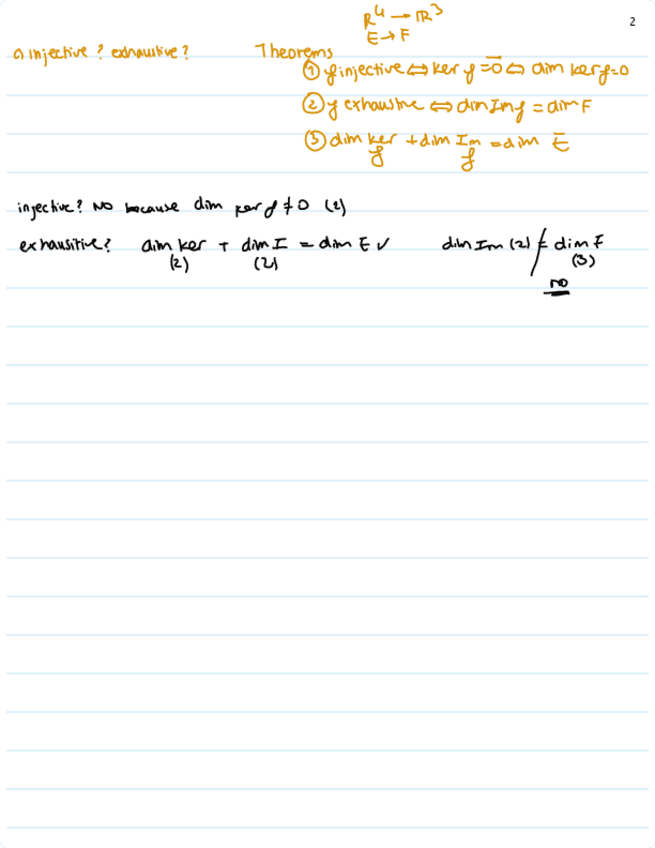 R⁴ → R³
2
E → F
a) injective? exhaustive? Theorems
① f injective ⇔ ker f = 0⃗ ⇔ dim ker f = 0
② f exhaustive ⇔ dim Im f = dim F
③ dim ker f + dim Im f = dim E
injective? NO because dim ker f ≠ 0 (2)
exhausitive? dim ker + dim I = dim E ✓ dim Im (2) ≠ dim F
(2) (2) (3)
no